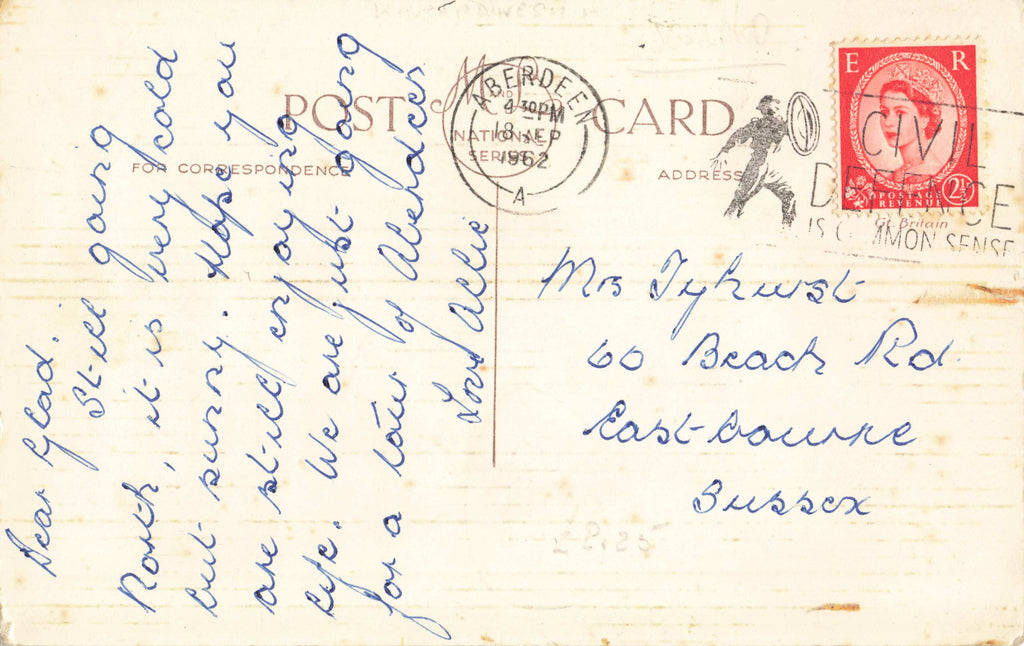 POST CARD
NATIONAL
SERIES
FOR CORRESPONDENCE
ADDRESS
ABERDEEN
4 30PM
18 SEP
1962
A
E R
POSTAGE
REVENUE
2½
CIVIL
DEFENCE
IS COMMON SENSE
Gt Britain
Dear Glad.
Still going
North, it is very cold
but sunny. Hope you
are still enjoying
life. We are just going
for a tour of Aberdeen
Love Allie
Mrs Tyhurst
60 Beach Rd.
Eastbourne
Sussex
£2.25